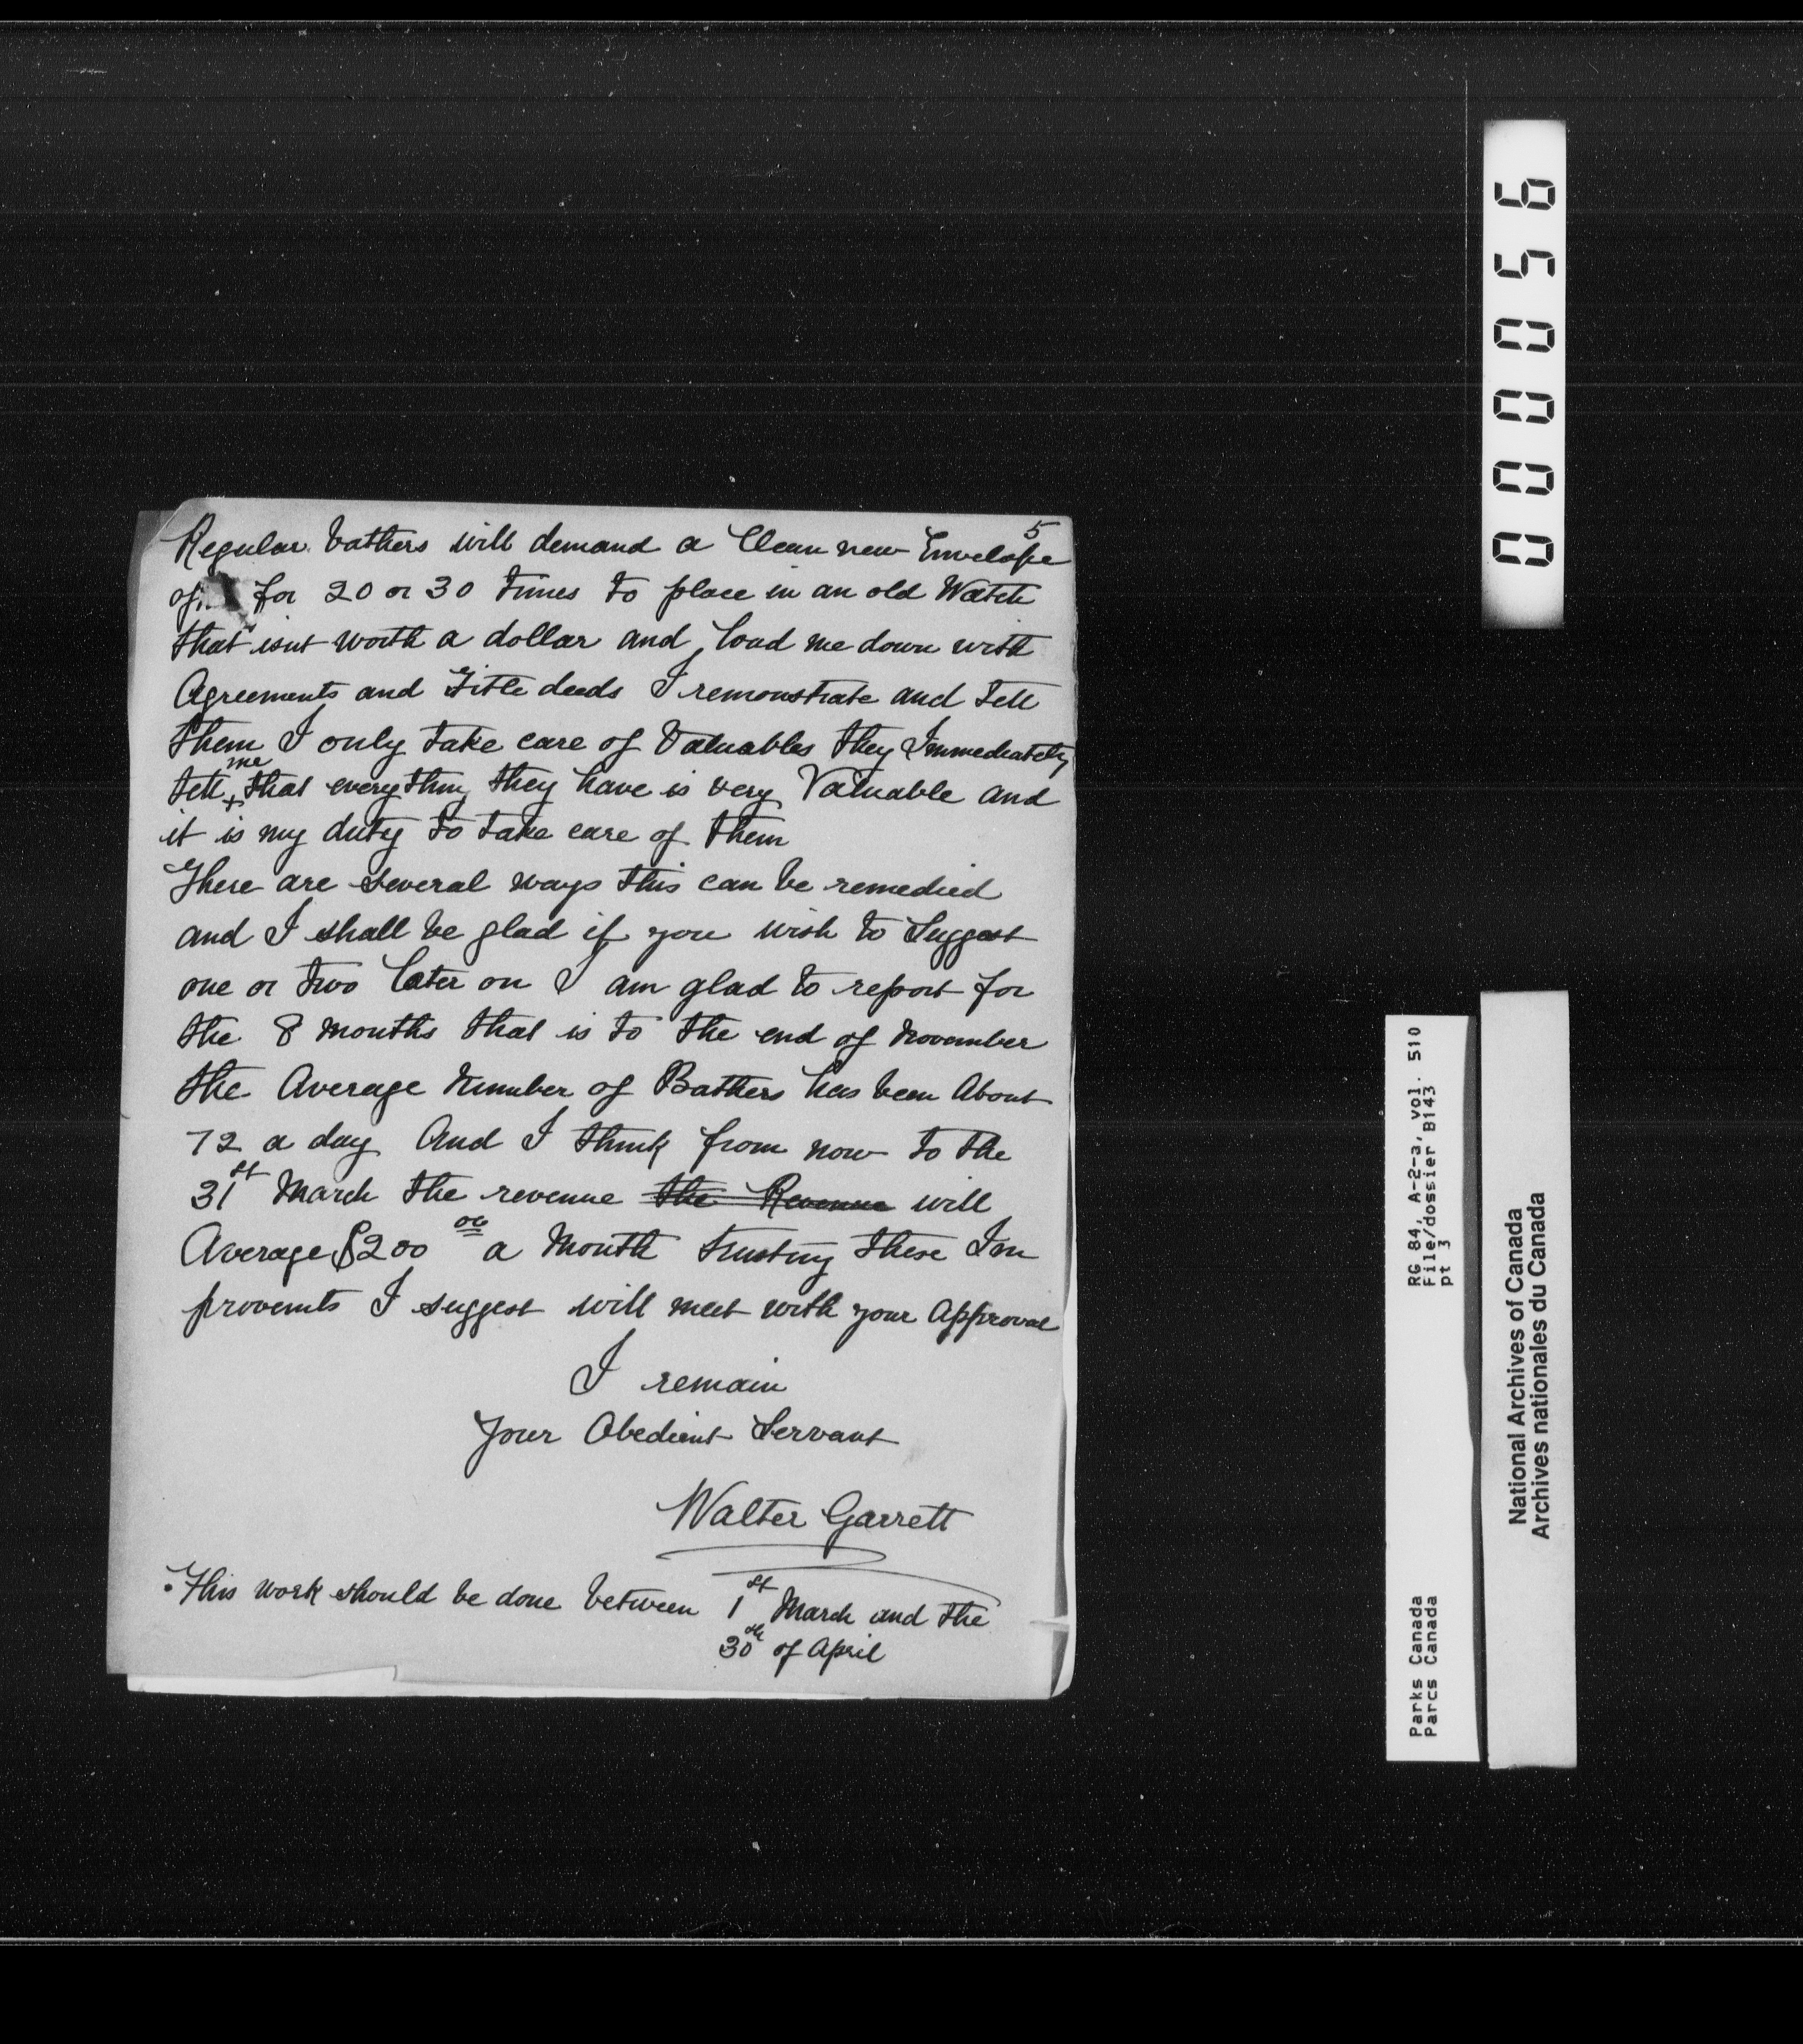 5
Regular bathers will demand a Clean new Envelope
for 20 or 30 times to place in an old Watch
that isnt worth a dollar and load me down with
Agreements and Title deeds I remonstrate and tell
them I only take care of Valuables they Immediately
tell me that everything they have is very Valuable and
it is my duty to take care of them
There are several ways this can be remedied
and I shall be glad if you wish to Suggest
one or two later on I am glad to report for
the 8 months that is to the end of November
the Average Number of Bathers has been About
72 a day And I think from now to the
31st March the revenue the Revenue will
Average $200 00 a Month trusting these Im
provemts I suggest will meet with your Approval
I remain
Your Obedient Servant
Walter Garrett
This work should be done between 1st March and the
30th of April
000056
RG 84, A-2-a, vol. 510
File/dossier B143
pt 3
Parks Canada
Parcs Canada
National Archives of Canada
Archives nationales du Canada